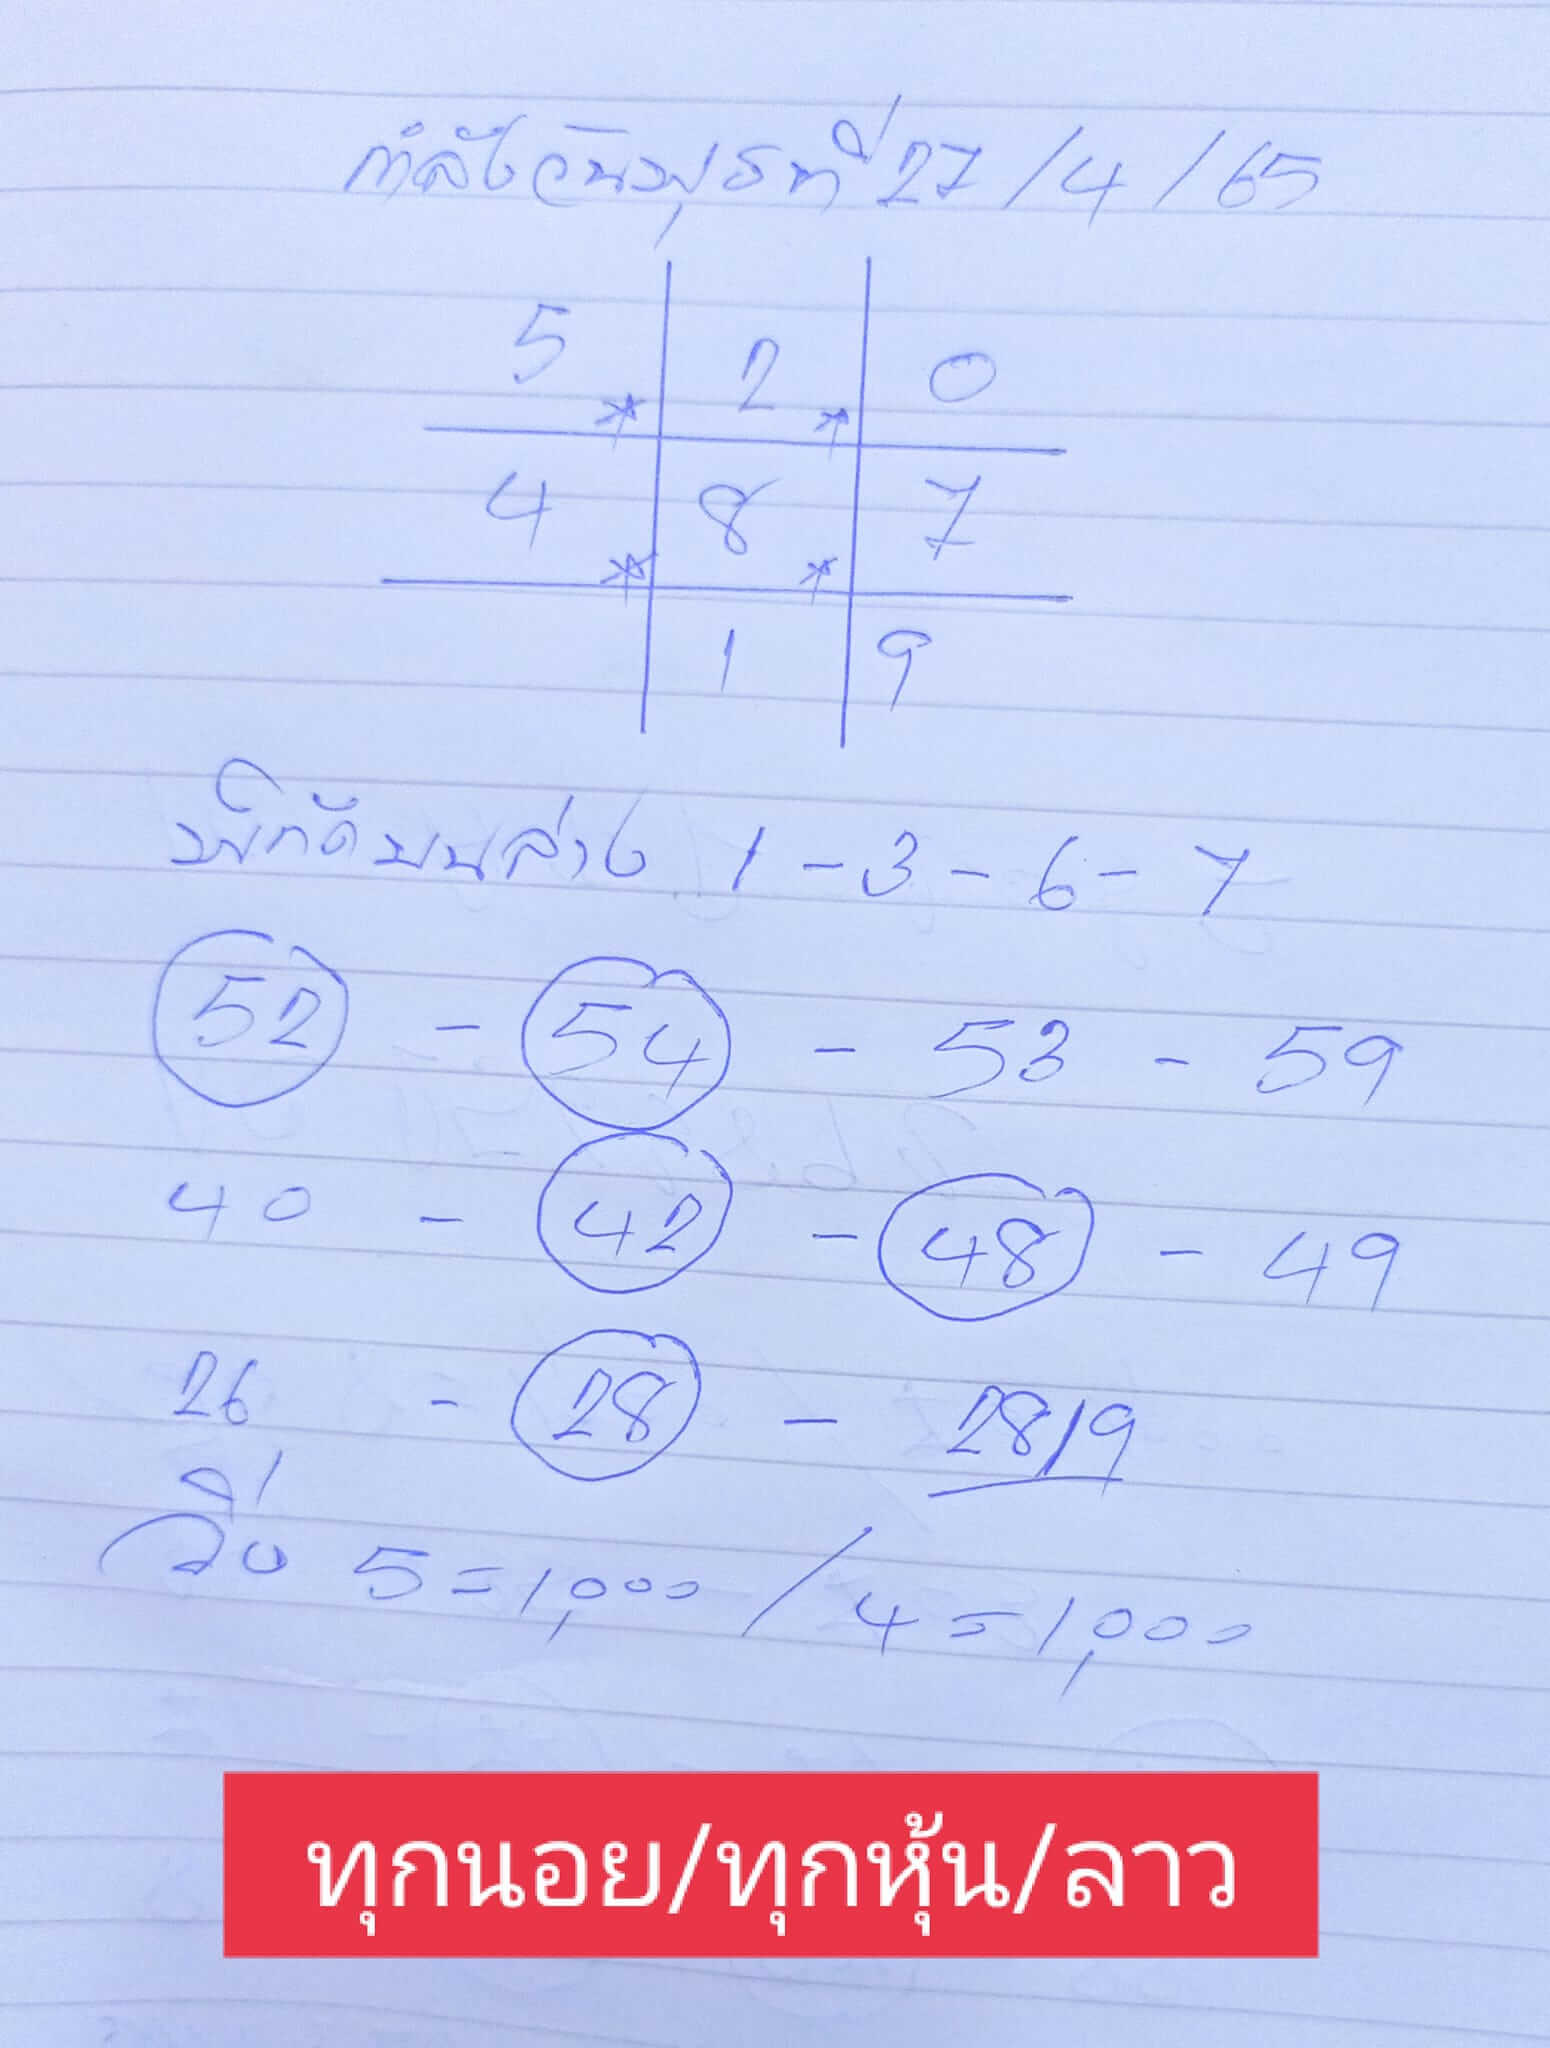 กำลังวันพุธที่ 27/4/65
5 2 0
4 8 7
1 9
พิกัดบนล่าง 1-3-6-7
52 - 54 - 53 - 59
40 - 42 - 48 - 49
26 - 28 - 28/9
วิ่ง 5=1,000 / 4=1,000
ทุกนอย/ทุกหุ้น/ลาว